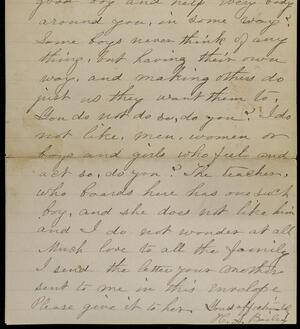 good boy and help every body
around you, in some way?
Some boys never think of any
thing, but having their own
way, and making others do
just as they want them to.
You do not do so, do you? I do
not like, men, women or
boys and girls who feel and
act so, do you? The teacher,
who boards here has one such
boy, and she does not like him
and I do not wonder at all
Much love to all the family
I send the letter your mother
sent to me in this envelope
Please give it to her.